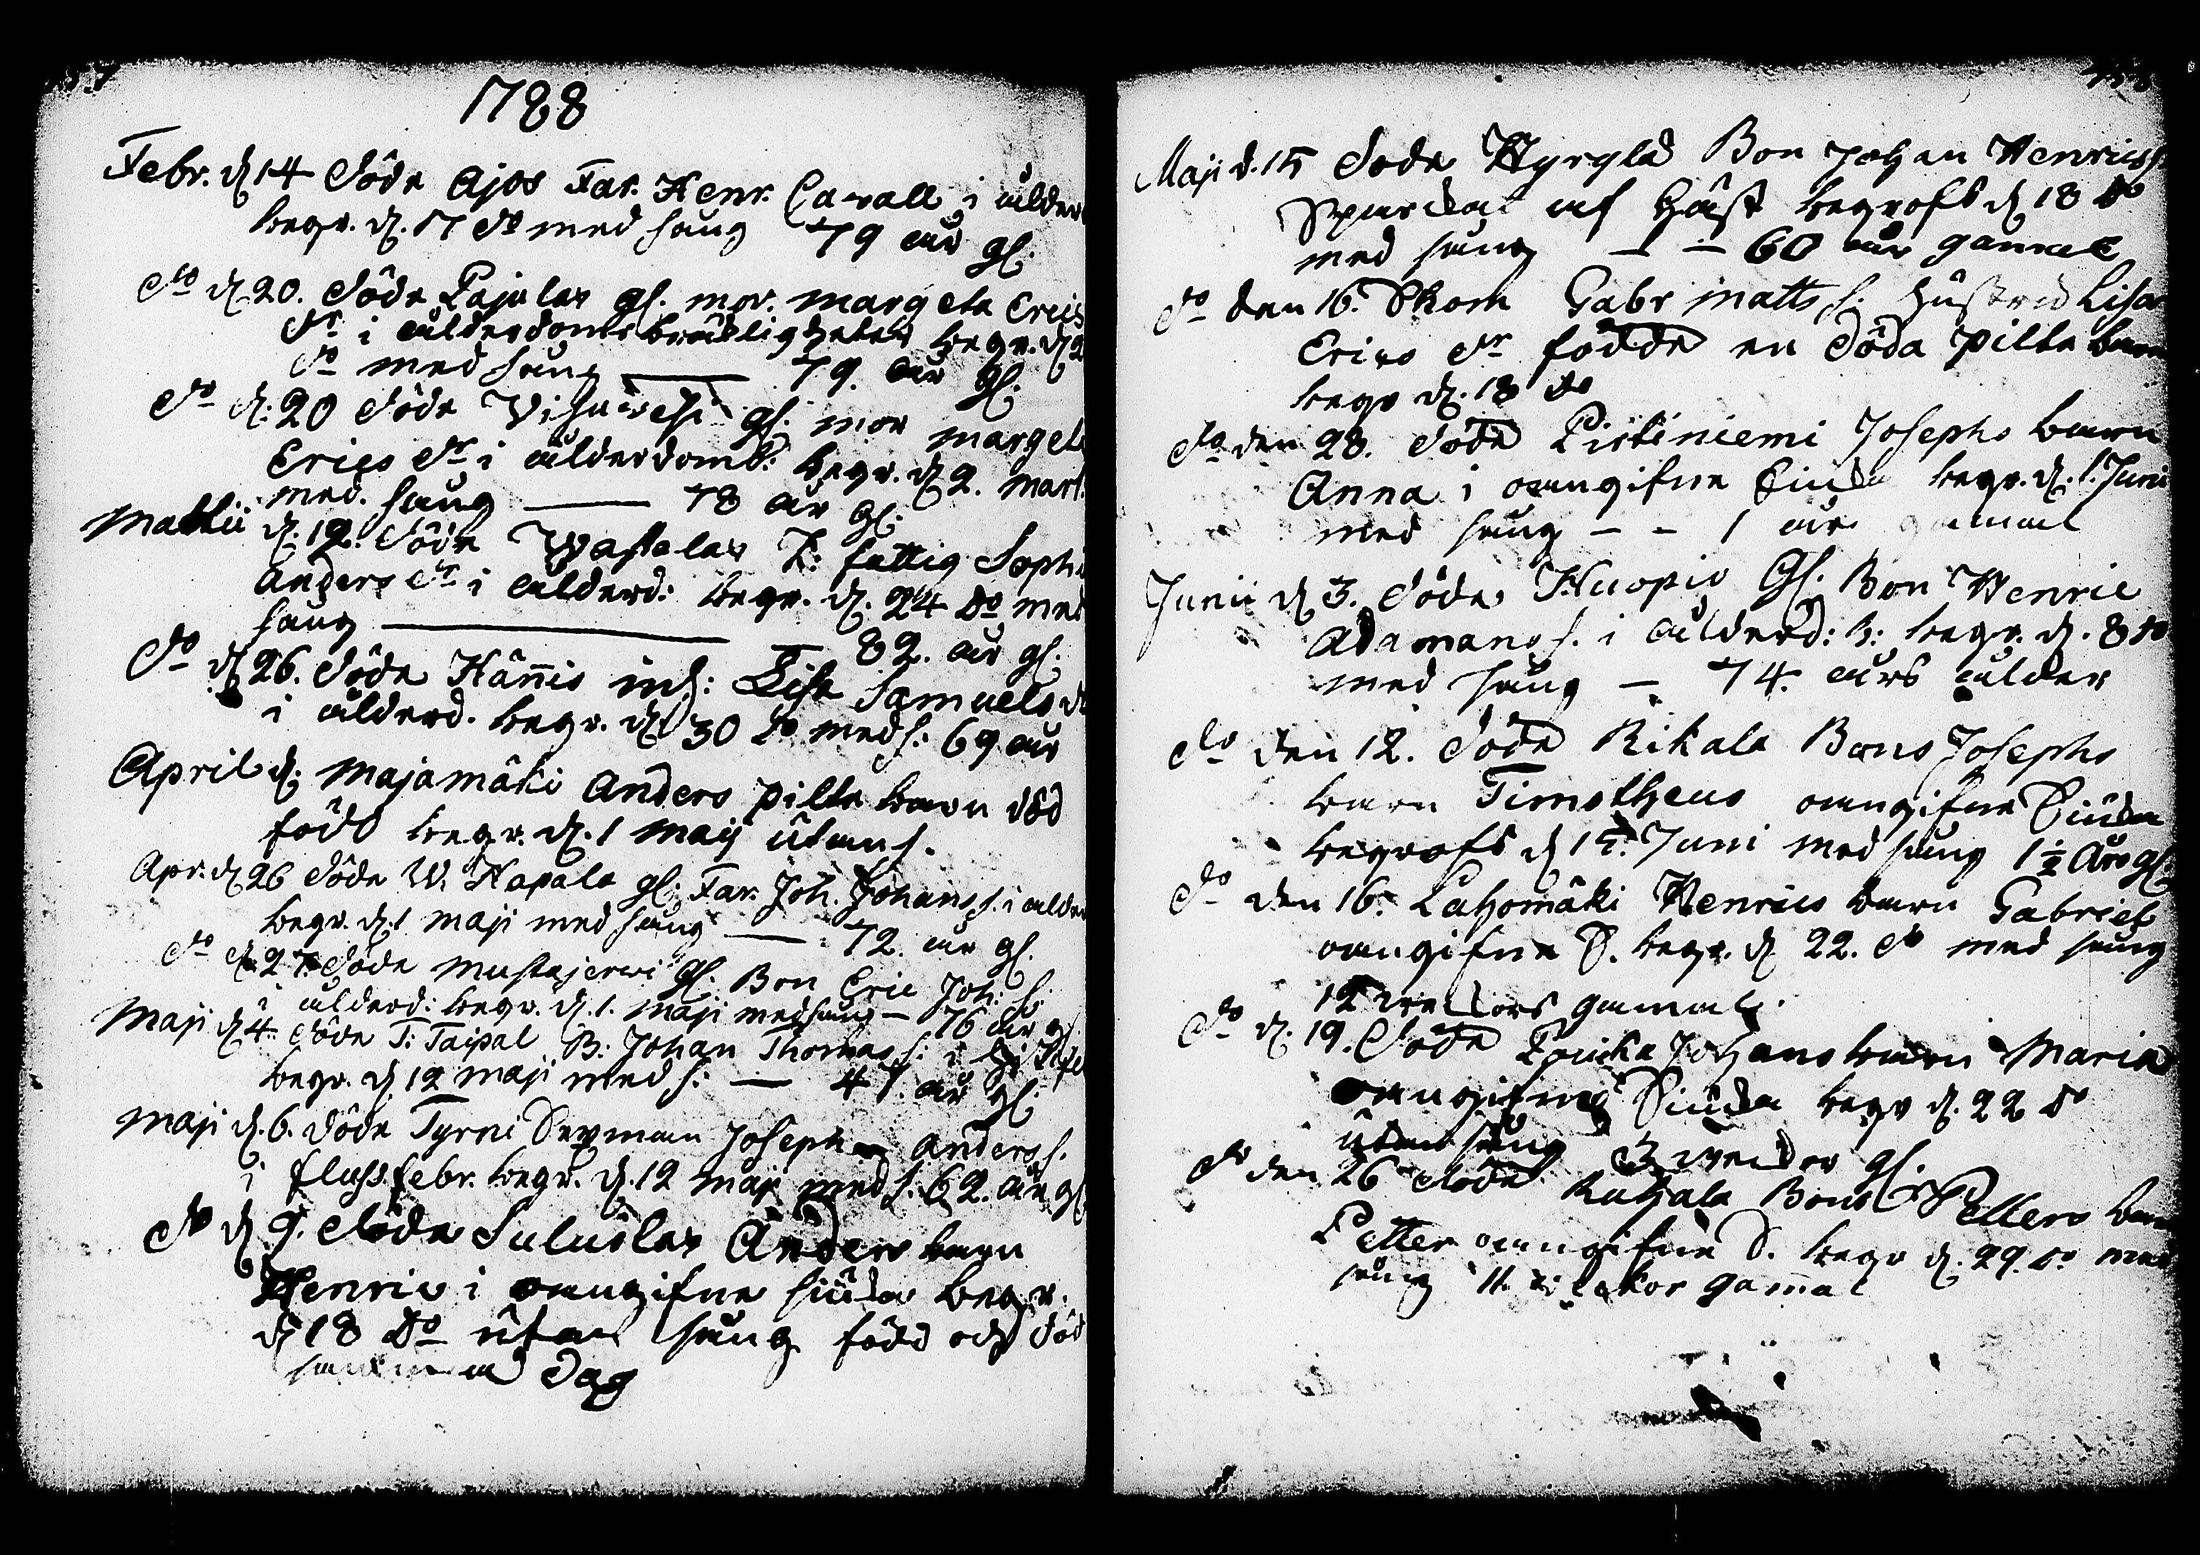 1788
Febr. d. 14 Döde Ajos Far. Henr. Cavall i ålder
begr. d. 17 do med sång 79 år gl.
do d. 20. Döde Pajulax gl. mor. Margeta Erics
dr i ålderdoms bräckligheter begr. d. 2
do med sång — 79. år gl.
do d. 20 Döde gl. mor Margeta
Erics dr i ålderdoms: begr. d. 2. Mart.
med. sång — 78 år gl.
Martii d. 19. Döde fattig Sophia
Anders dr i ålderd: begr. d. 24 do med
sång — 82. år gl.
do d. 26. Döde Hännis inh: Lisa Samuels dr
i ålderd. begr. d. 30 do med s: 69 år
April d. Majamäki Anders pilte barn död
född begr. d. 1 Maij utan s.
Apr. d. 26 Döde W. Hapala gl. Far. Joh. Johans s. i ålder
begr. d. 1 Maji med sång — 72. år gl.
do d. 27 Döde Mustajerwi gl. Bon Eric Joh: s.
i ålderd: begr. d. 1. Maji med sång — 76 år gl.
Maji d. 4. Döde T: Taipal B: Johan Thomas s: i
begr. d. 12 Maji med s: — år gl.
Maji d. 6. Döde Tyrni Joseph Anders s.
i fluss febr. begr. d. 12 Maji med s. 62. år gl
do d. 9. Döde Anders barn
Henric i oangifne siuda begr.
d. 18 do utan sång född och död
samma dag
Maji d. 15 Döde Bon Johan Henrics s.
Sparckat af Häst begrofs d. 18 do
med sång — — 60 år gammal
do den 16. Gabr Matts s: hustru Lisa
Erics dr födde en döda pilte barn
begr d. 18 do
do den 28. Döde Pistiniemi Josephs barn
Anna i oangifne Siuda begr. d. 1. Juni
med sång — — 1 år gammal
Junii d. 3. Döde Kuopio Gl. Bon Henric
Adamans s. i ålderd: b: begr. d. 8 do
med sång — 74. års ålder
do den 12. Döde Rikala Bons Josephs
barn Timotheus oangifne Siuda
begrofs d. Juni med sång 1½ års gl.
do den 16. Lahomäki Henrics barn Gabriel
oangifne S. begr. d. 22. do med sång
12 veckors gammal.
do d. 19. Döde Johans barn Maria
oangifne Siuda begr d. 22 do
utan sång 3 veckor gl.
do den 26 Döde Bons Petters barn
Petter oangifne S. begr d. 29. do med
sång 11. veckor gammal